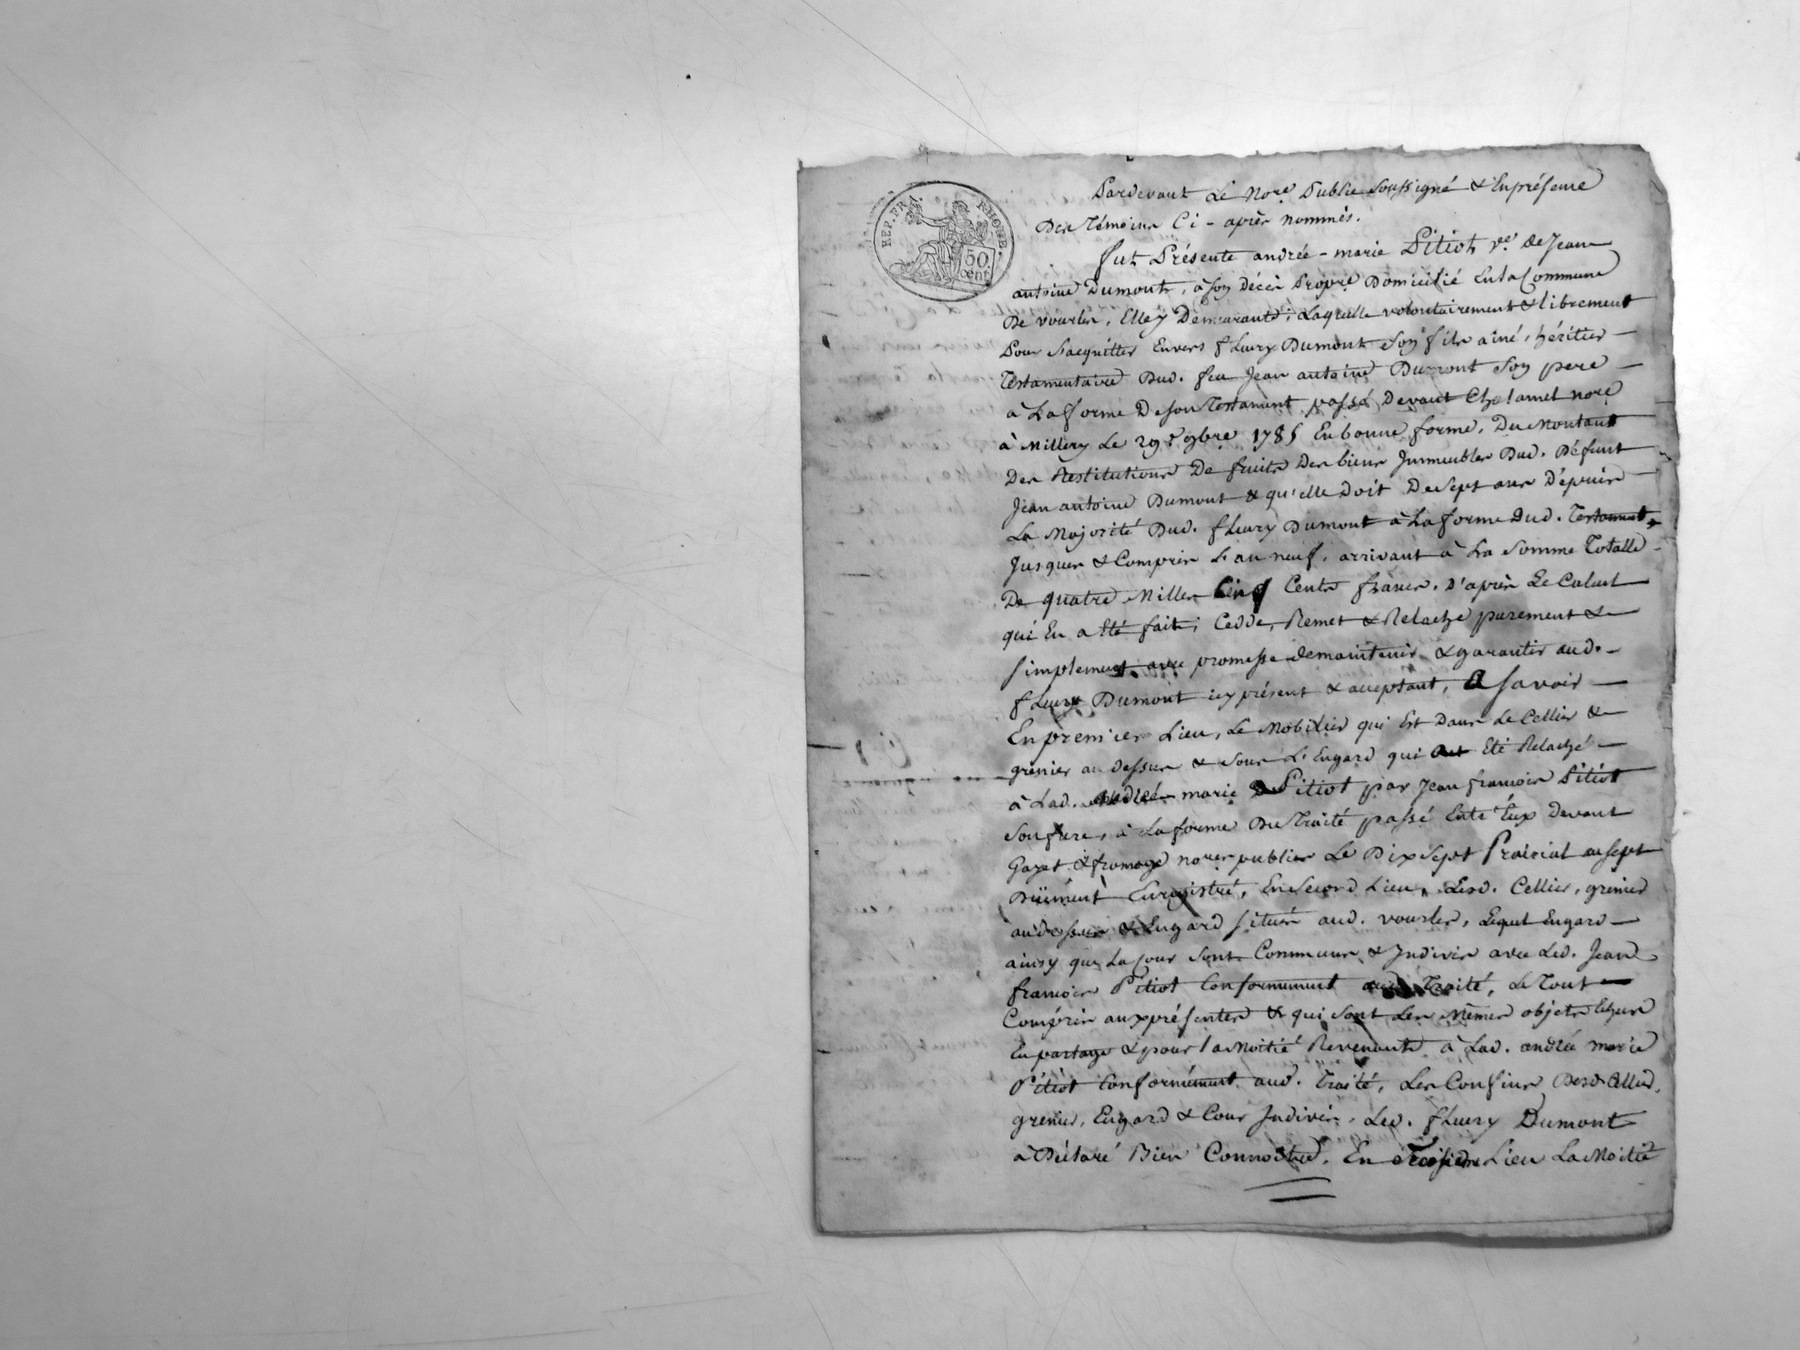 REP. FRA. RHONE.
50
cent
Pardevant Le Nore. Public Soussigné & Enprésence
Des Témoins Ci - après nommés.
fut Présente andrée - marie Pitiot ve. de Jean
antoine Dumont, à son Décès Propre. Domicilié En la Commune
De vourles, Elle y Demeurante; Laquelle volontairement & librement
Pour s'acquitter Envers fleury Dumont Son fils ainé, héritier
Testamentaire Dud. feu Jean antoine Dumont Son pere
à La forme De son Testament passé Devant Chelamel nore
à Millery Le 29 9bre 1785 En bonne forme, Du Montant
Des Restitutions De fruits Des biens Immeubles Dud. Défunt
Jean antoine Dumont & qu'elle Doit De Sept ans Dépuis
La Majorité Dud. fleury Dumont à La forme Dud. Testament,
Jusques & Compris L'an neuf, arrivant à La Somme Totalle
De quatre Milles Cinq Cents francs, D'après Le Calcul
qui En a Eté fait; Cedde, Remet & Relache purement &
Simplement avec promesse de maintenir & garantir aud.
fleury Dumont icy présent & acceptant, a Savoir
En premier Lieu, Le Mobilier qui Est Dans Le Cellier &
grenier au Dessus & Sous L'Engard qui Eté Relaché
à Lad. andrée marie Pitiot par Jean françois Pitiot
Son frere, à La forme Du Traité passé Entr'Eux Devant
Gayet & fromage nores publics Le Dix Sept Prairial an sept
Düément Enregistré, En Second Lieu, Lesd. Cellier, grenier
au dessus & Engard situés aud. vourles, Lequel Engard
ainsy que La Cour Sont Communs & Indivis avec Led. Jean
françois Pitiot Conformément aud. Traité, Le Tout
Compris aux présentes & qui Sont Les Mêmes objets Echus
En partage & pour la Moitié Revenante à Lad. andrée marie
Pitiot Conformément aud. Traité, Les Confins Desd. Cellier,
grenier, Engard & Cour Indivis, Led. fleury Dumont
à Déclaré Bien Connoître. En Troisième Lieu La Moitié